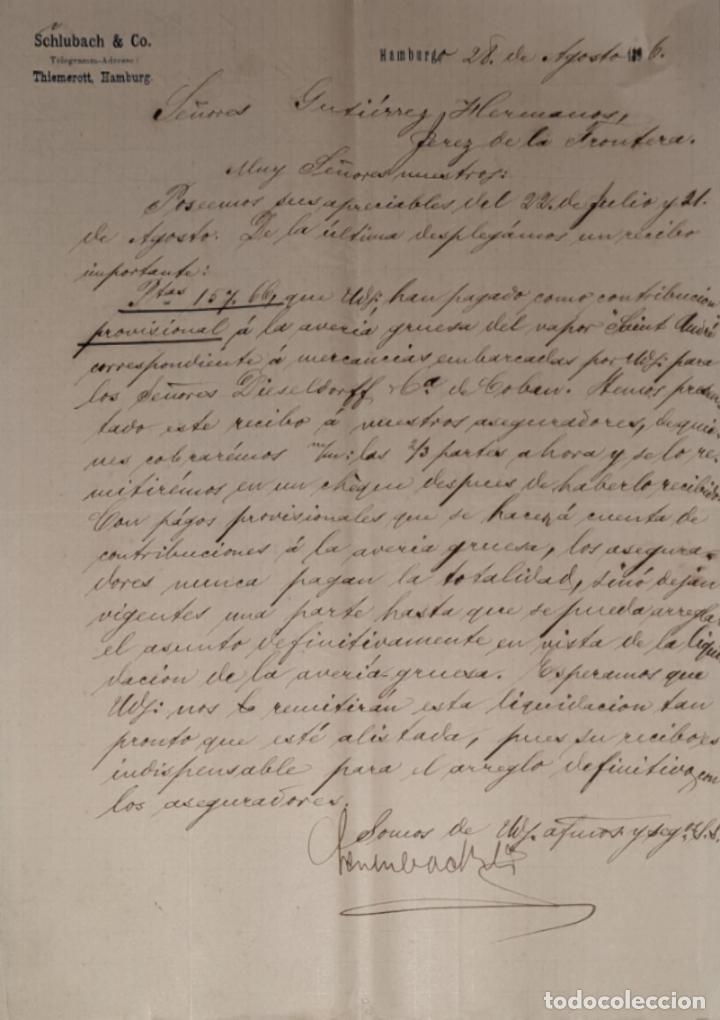 Schlubach & Co.
Telegramm-Adresse:
Thiemerott, Hamburg.
Hamburgo 28. de Agosto 1896.
Señores Gutiérrez Hermanos,
Jerez de la Frontera.
Muy Señores nuestros:
Poseemos sus apreciables del 22. de Julio y 21.
de Agosto. De la última desplegámos un recibo
importante:
Ptas 157.66, que Uds: han pagado como contribucion
provisional á la averia gruesa del vapor "Saint André
correspondiente á mercancias embarcadas por Uds: para
los Señores Dieseldorff & Ca. de Coban. Hemos presen-
tado este recibo á nuestros aseguradores, de quie-
nes cobrarémos m/m: las 2/3 partes ahora y se lo re-
mitirémos en un chèque despues de haberlo recibido.
Con págos provisionales que se hacen á cuenta de
contribuciones á la averia gruesa, los asegura-
dores nunca pagan la totalidad, sinó dejan
vigentes una parte hasta que se pueda arreglar
el asunto definitivamente en vista de la liqui-
dacion de la averia-gruesa. Esperamos que
Uds: nos remitirán esta liquidacion tan
pronto que esté alistada, pues su recibo es
indispensable para el arreglo definitivo con
los aseguradores.
Somos de Uds. afmos. y seg. S.S.
Schlubach & Co
todocoleccion